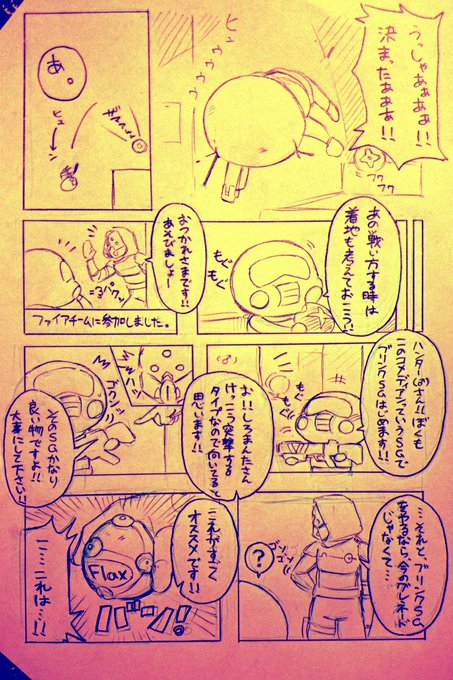 うっしゃあぁぁぁ!!
決まったぁぁぁ!!
ヒュ
ウウウウ
フワ
フワ
あ。
ヒュー
あの戦い方する時は
着地も考えておこう!!
もぐ
もぐ
おつかれさまです!!
あそびましょー
ファイアチームに参加しました。
ハンターさん!!ぼくも
このコメディアンっていうSGで
ブリンクSGはじめます!!
もぐ
もぐ
お!!しろまんたさん
けっこう突撃する
タイプなので向いてると
思います!!
そのSGかなり
良い物ですよ!!
大事にして下さい!!
…それと、ブリンクSG
をやるなら、今のグレネード
じゃなくて…
ゴソゴソ
?
これがすごく
オススメです!!
Flax
……これは…!!